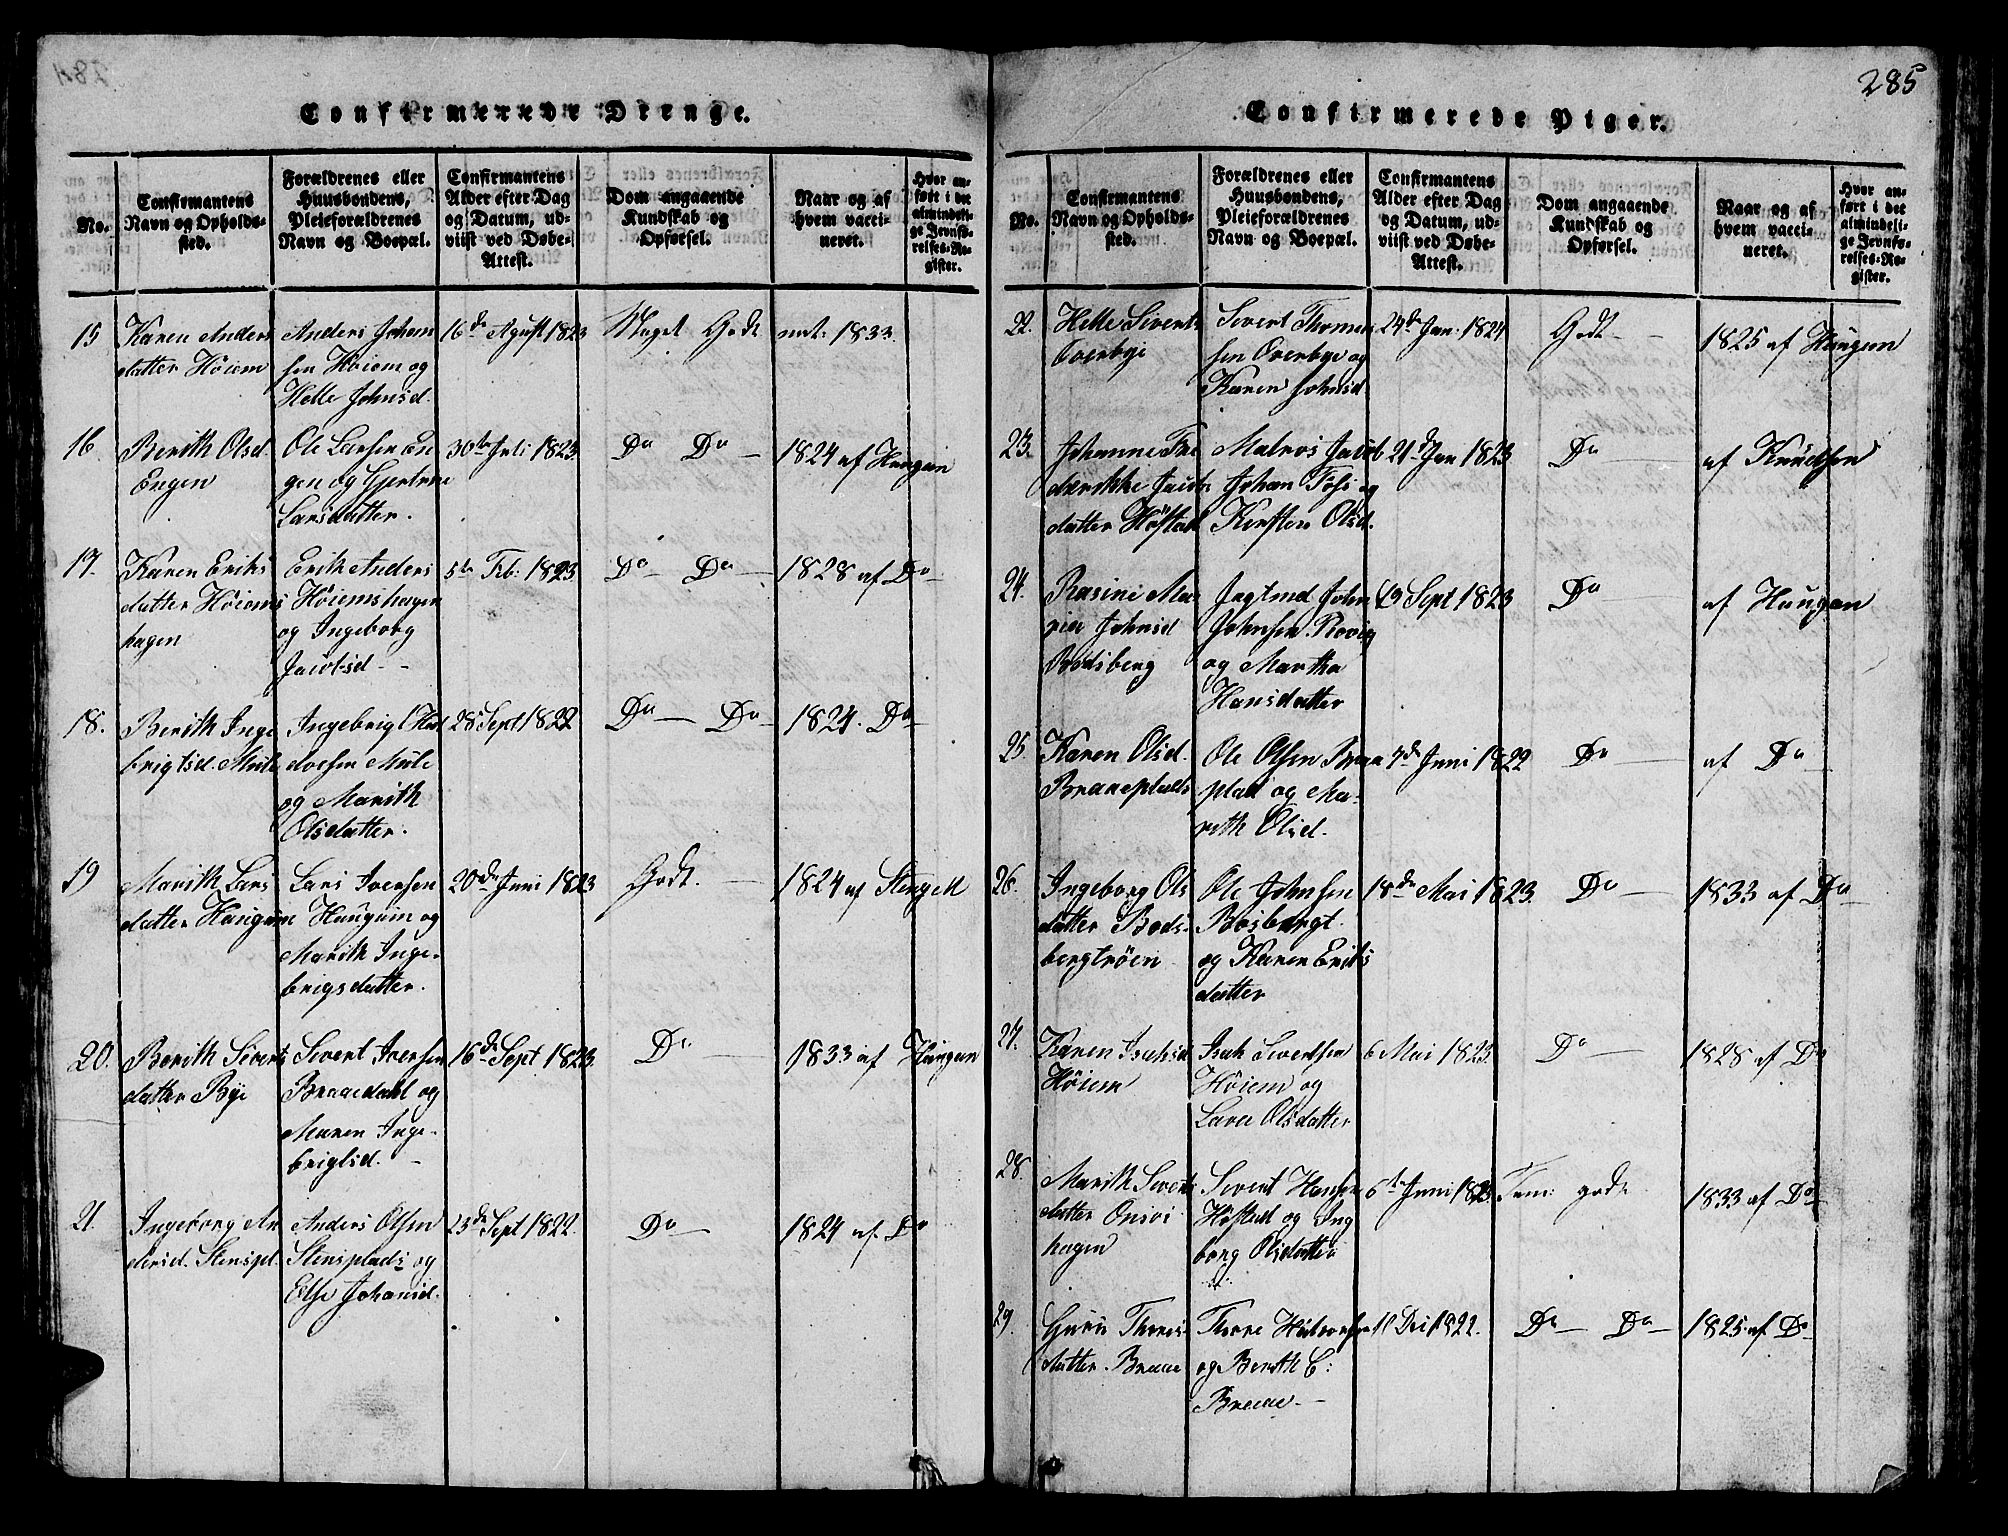 285
Confirmerede Drenge.
No.
Confirmantens
Navn og Opholds-
sted.
Forældrenes eller
Huusbondens,
Pleieforældrenes
Navn og Boepæl.
Confirmantens
Alder efter Dag
og Datum, ud-
viist ved Døbe-
Attest.
Dom angaaende
Kundskab og
Opførsel.
Naar og af
hvem vacci-
neret.
Hvor an-
ført i det
almindeli-
ge Jevnfø-
relses-Re-
gister.
15
Karen Anders
datter Höiem
Anders Johan
sen Höiem og
Helle Johnsd.
16de Agust 1823
Meget Godt
nat: 1833.
16
Berith Olsd.
Engen
Ole Larsen En
gen og Gjertrue
Larsdatter.
30te Juli 1823
Do Do
1824 af Haugan
17.
Karen Eriks
datter Höiems
hagen
Erik Anders
Höiemshagen
og Ingeborg
Jacobsd --
5te Feb: 1823
Do Do
1828 af Do
18.
Berith Inge
brigtsd. Mule
Ingebrigt Hal
dorsen Mule
og Marith
Olsdatter.
28 Sept 1822
Do Do
1824. Do
19
Marith Lars
datter Haugum
Lars Iversen
Haugum og
Marith Inge-
brigsdatter.
20de Juni 1823
Godt.
1824 af
20.
Berith Siverts
datter Bye
Sivert Iversen
Braaedahl og
Maren Inge-
brigtsd. -
16de Sept 1823
Do
1833 af Haugan
21.
Ingeborg An
dersd. Stenspl.
Anders Olsen
Stensplads og
Else Johansd.
23de Sept 1822.
Do
1824 af Do
Confirmerede Piger.
No.
Confirmantens
Navn og Opholds-
sted.
Forældrenes eller
Huusbondens,
Pleieforældrenes
Navn og Boepæl.
Confirmantens
Alder efter Dag
og Datum, ud-
viist ved Døbe-
Attest.
Dom angaaende
Kundskab og
Opførsel.
Naar og af
hvem vacci-
neret.
Hvor an-
ført i det
almindeli-
ge Jevnfø-
relses-Re-
gister.
22.
Helle Siverts
Overbye
Sivert Thomes
sen Overbye og
Karen Johnsd
24de Jan. 1824
Godt
1825 af Haugan
23.
Johanne Fre
derikke Jacobs
datter Höstad
Matros Jacob
Johan og
Kirsten Olsd.
21de Jan 1823
Do
af Knudsen
24.
Rasine Ma
rie Johnsd
Bodsberg
Jegtmd John
Johnsen
og Martha
Hansdatter
Sept 1823
Do
af Haugan
25.
Karen Olsd.
Braaeplads
Ole Olsen Braa
plad og Ma-
reth Olsd.
7de Juni 1822
Do
af Do
26.
Ingeborg Ols
datter Bods-
bergtröen
Ole Johnsen
Bosbergt.
og Karen Eriks
datter
18de Mai 1823.
Do
1833 af Do
27.
Karen Isaksd
Höiem
Isak Sivertsen
Höiem og
Olsdatter
6 Mai 1823.
Do
1828 af Do
28.
Marith Siverts
datter
hagen
Sivert Hansen
Höstad og Ing
borg Olsdatter
6te Juni 1823
Tem: godt
1833 af Do
29.
Guru Thores-
datter. Braae
Thore
og Berith C:
Braae. -
11 Dec 1822.
Do Do
1825. af Do